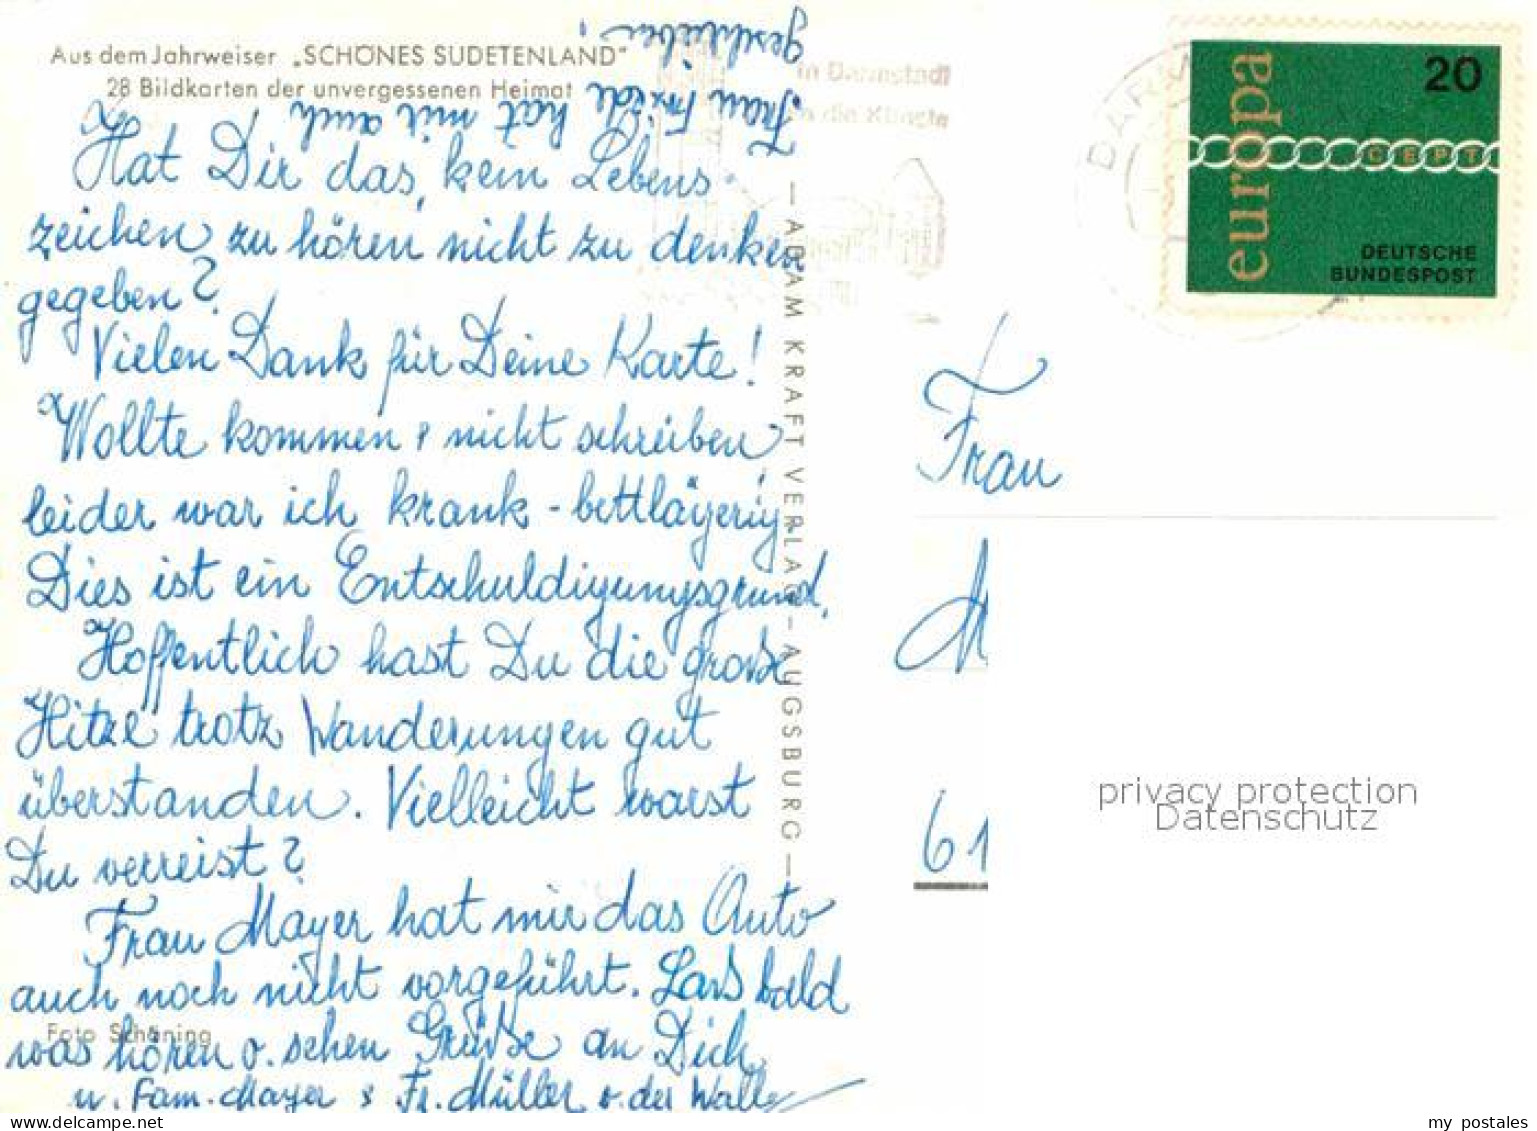 Aus dem Jahrweiser „SCHÖNES SUDETENLAND"
28 Bildkarten der unvergessenen Heimat
Hat Dir das, kein Lebens-
zeichen zu hören nicht zu denken
gegeben?
Vielen Dank für Deine Karte!
Wollte kommen & nicht schreiben
leider war ich krank - bettlägerig.
Dies ist ein Entschuldigungsgrund.
Hoffentlich hast Du die große
Hitze trotz Wanderungen gut
überstanden. Vielleicht warst
Du verreist?
Frau Mayer hat mir das Auto
auch noch nicht vorgeführt. Laß bald
was hören o. sehen Grüße an Dich
u. Fam. Mayer & Fr. Müller v. der Wall
Frau Friede hat mir auch
geschrieben.
Foto Schöning
— ADAM KRAFT VERLAG - AUGSBURG —
in Darmstadt
die Künste
DAR
europa
20
CEPT
DEUTSCHE
BUNDESPOST
Frau
M
61
privacy protection
Datenschutz
my postales